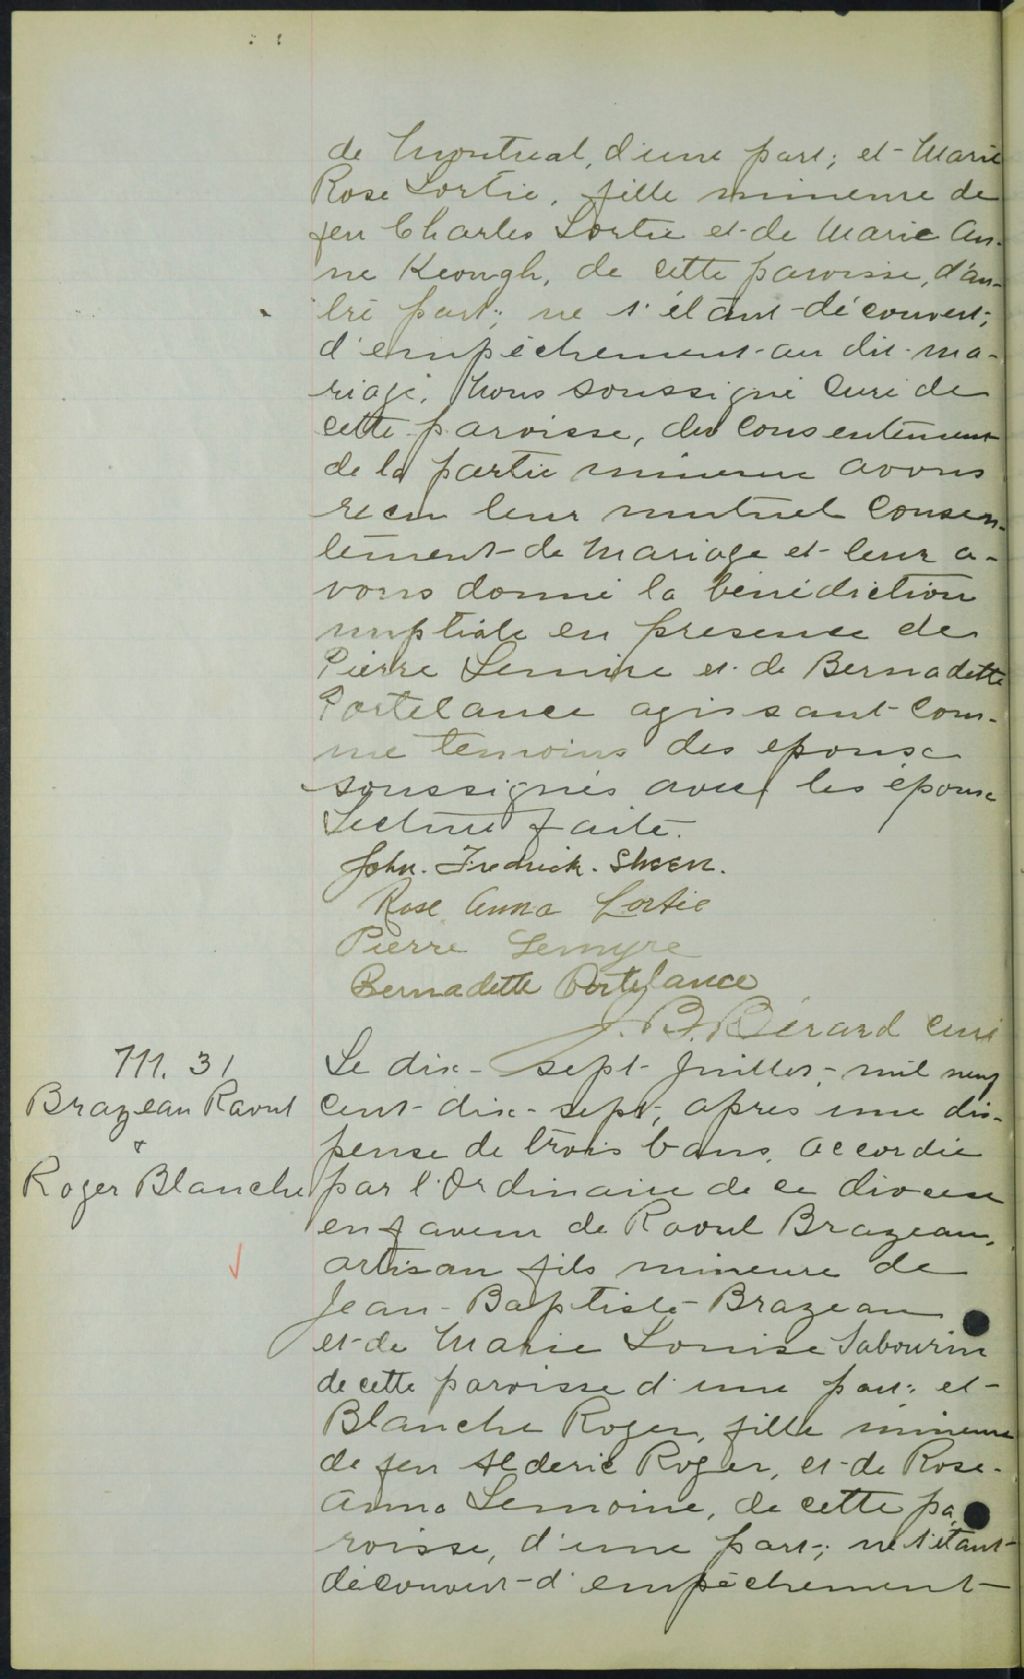 de Montreal, d'une part; et Marie
Rose Lortie, fille mineure de
feu Charles Lortie et de Marie An-
ne Keough, de cette paroisse, d'au-
tre part; ne s'étant découvert;
d'empêchement au dit ma-
riage, Nous soussigné Curé de
cette paroisse, du consentement
de la partie mineure avons
recu leur mutuel Consen-
tement de Mariage et leur a-
vons donné la bénédiction
nuptiale en presence de
Pierre Lemire et de Bernadette
Portelance agissant com-
me temoins des epoux
soussignés avec les époux
Lecture faite.
John. Fredrick. Sheen.
Rose Anna Lortie
Pierre Lemyre
Bernadette Portelance
J. B. Bérard curé
M. 31
Brazeau Raoul
+
Roger Blanche
Le dix-sept Juillet, mil neuf
cent dix-sept, apres une dis-
pense de trois bans, accordée
par l'Ordinaire de ce diocese
en faveur de Raoul Brazeau,
artisan fils mineure de
Jean-Baptiste Brazeau
et de Marie Louise Sabourin
de cette paroisse d'une part; et
Blanche Roger, fille mineure
de feu Alderic Roger, et de Rose-
Anna Lemoine, de cette pa
roisse, d'une part; ne s'étant
découvert d'empêchement